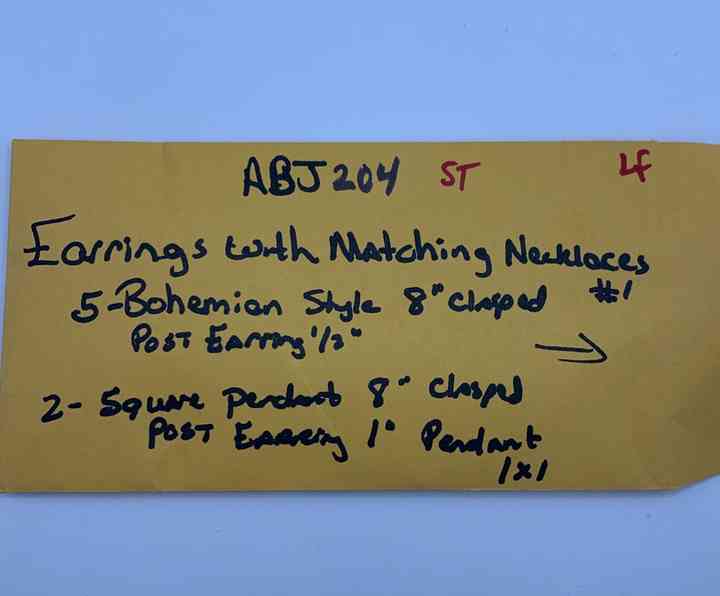 ABJ204 ST LF
Earrings with Matching Necklaces
5-Bohemian Style 8" clasped #1
Post Earring 1/2"
→
2- Square Pendant 8" clasped
Post Earring 1" Pendant
1x1